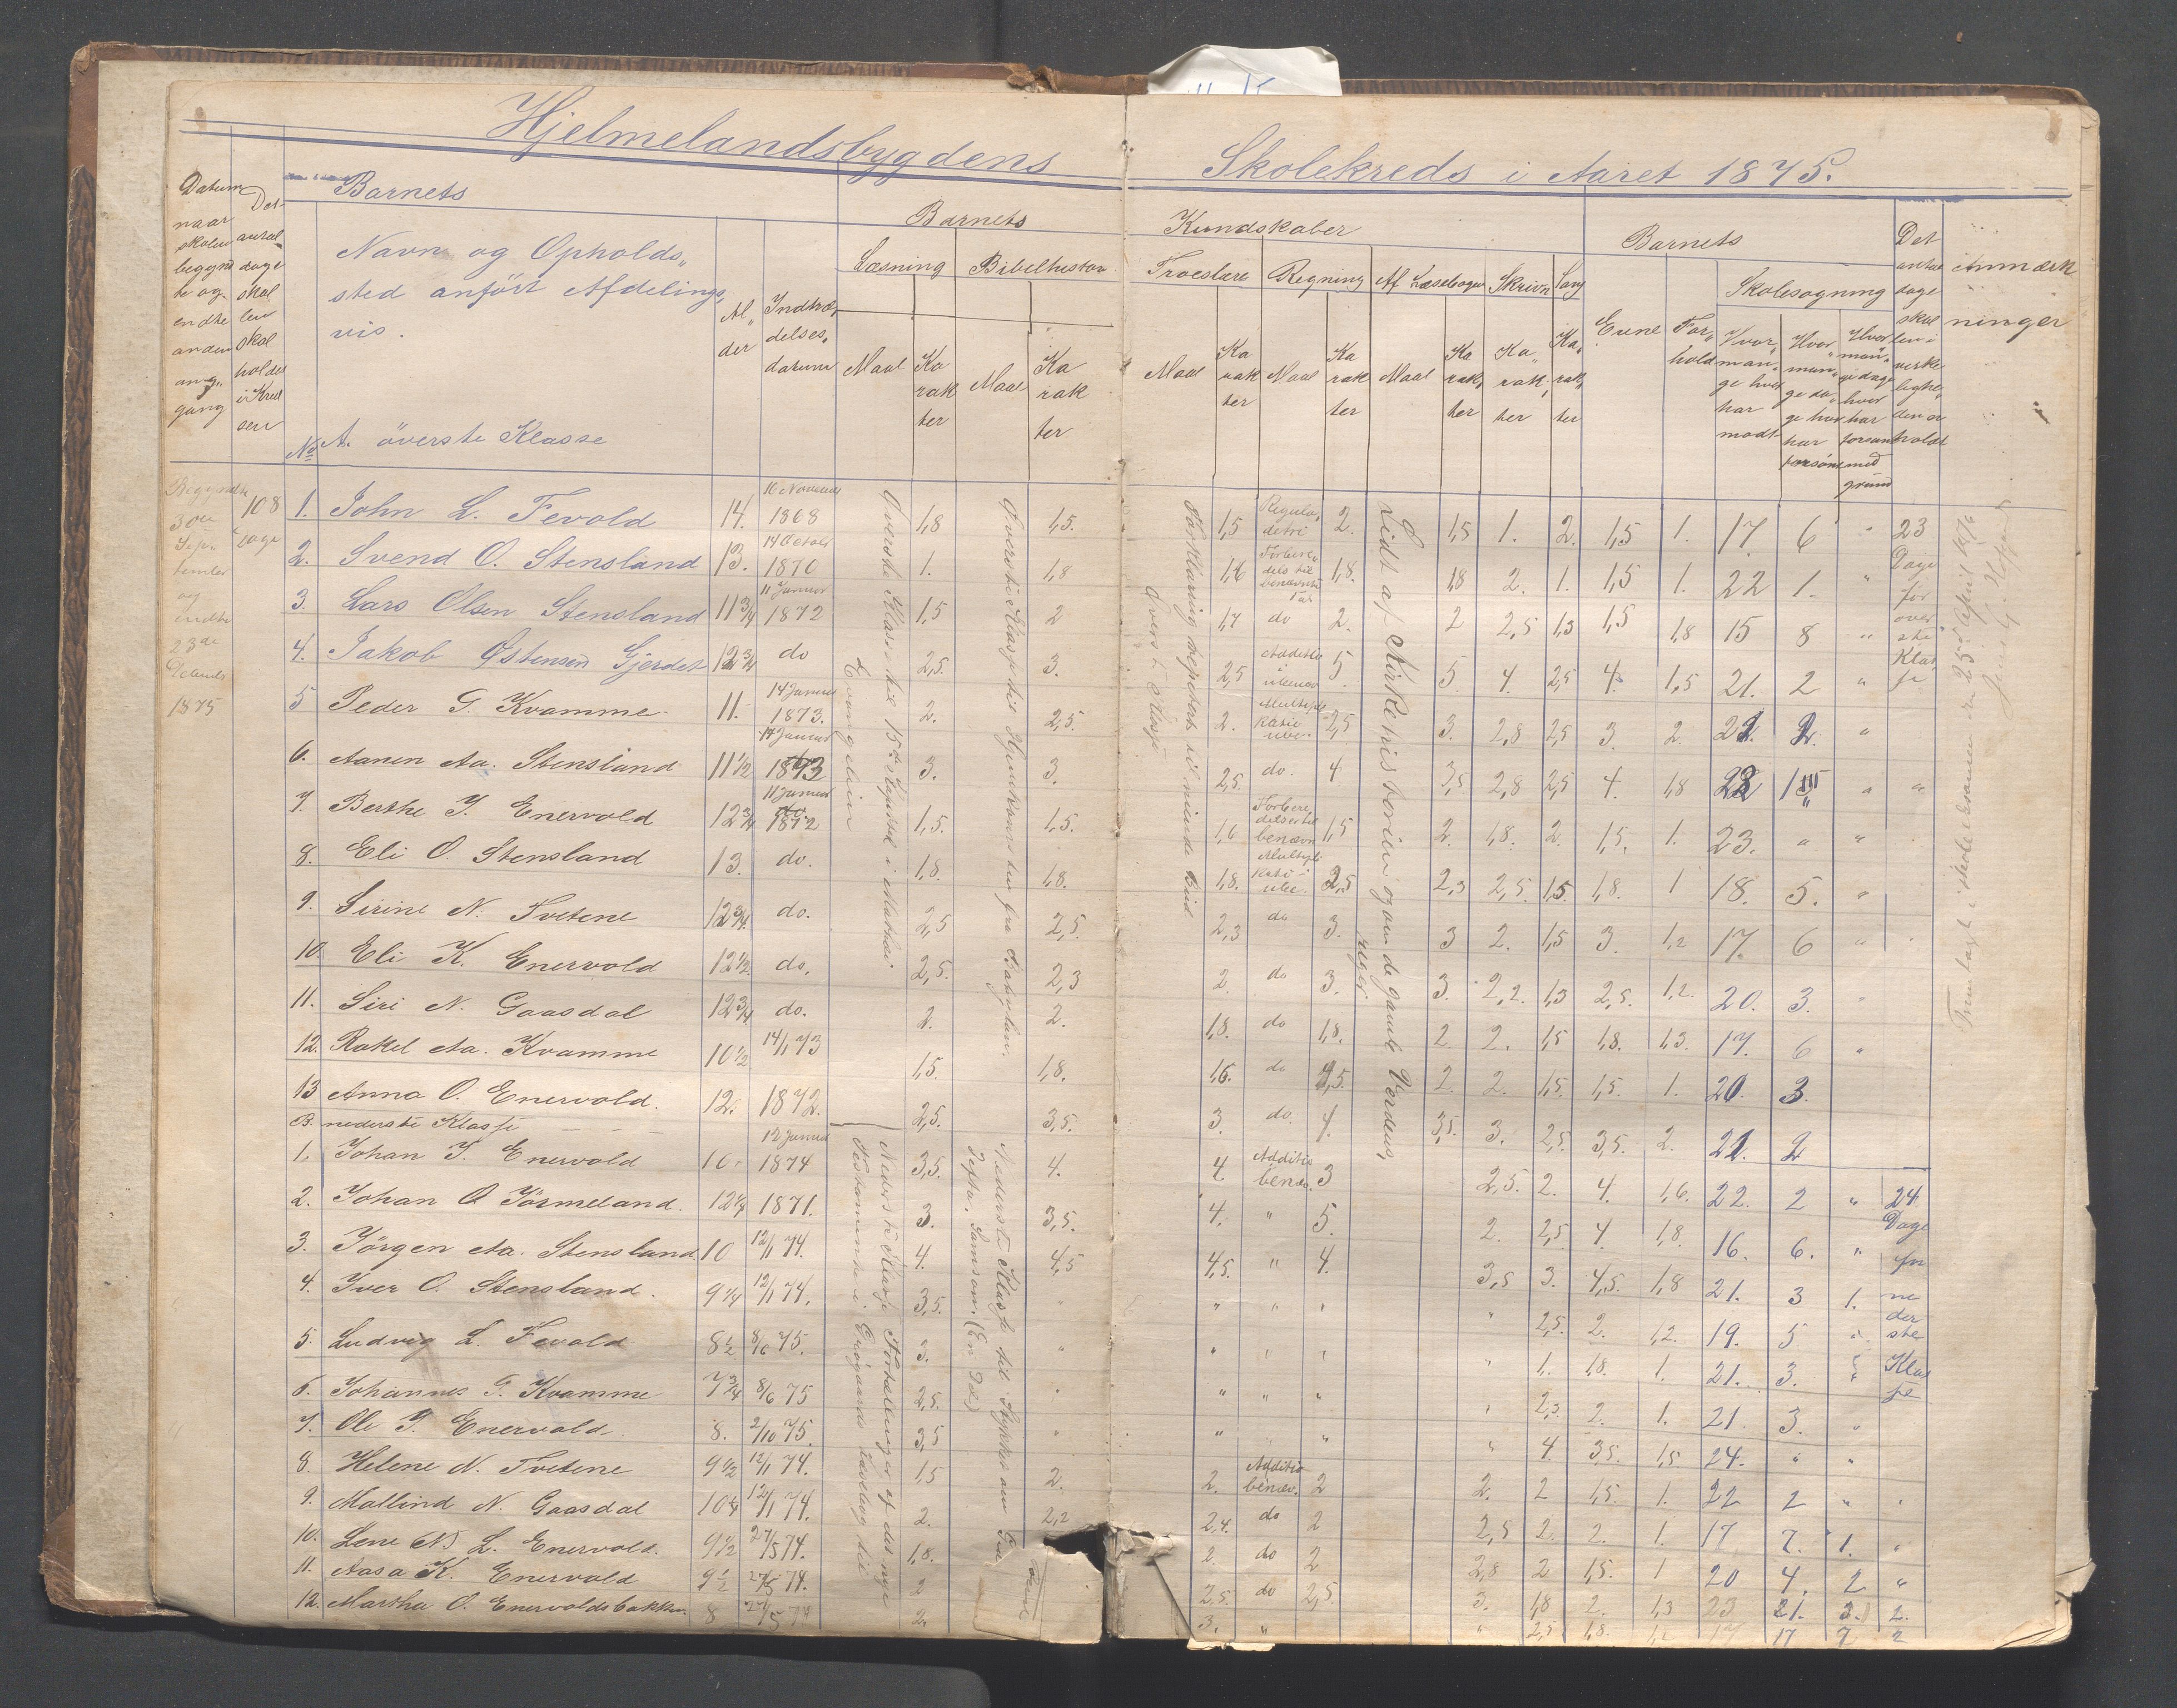 Hjelmelandsbygdens Skolekreds i Aaret 1875.
Datum naar skolen begynd te og endte anden gang
Det antal dage skal len skal holdes i Kred sen
Barnets
Navn og Opholds„
sted anført Afdelings„
vis.
Al„ der
Indtræ„ delses„ datum
Barnets Kundskaber
Læsning
Bibelhistor.
Troeslære
Regning
Af Læsebogen
Skrivn
Sang
Maal
Ka rak ter
Maal
Ka rak ter
Maal
Ka rak ter
Maal
Ka rak ter
Maal
Ka rak, ter
Ka„ rak, ter
Ka, rak, ter
Barnets
Evne
For„ hold
Skolesøgning
Hvor„ man„ ge hver har mødt
Hvor„ man„ ge da„ ge hver har forsømt
Hvor man„ ge dage hver har forsømt med grund
Det antal dage skolen i virke lighe„ den er holdt
Anmærk ninger
No A. överste Klasse
Begyndte 30te September og endte 23de 1875
108 Dage
1. John L. Fevold 14. 16 November 1868 1,8 1,5. 1,5 Regula„ detri 2. 1,5 1. 2. 1,5 1. 17. 6 " 23
2. Svend O. Stensland 13. 14 October 1870 1. 1,8 1,6 1,8. 1,8 2. 1. 1,5 1. 22 1. " Dage
3. Lars Olsen Stensland 11 3/4 11 Januar 1872 1,5 2 1,7 do 2. 2 2,5 1,3 1,5 1,8 15 8 " for
4. Jakob Østensen Gjerdet 12 3/4 do 2,5. 3. 2,5 5 5. 4. 2,5 4. 1,5 21. 2 "
5 Peder G. Kvamme 11. 14 Januar 1873. 2. 2,5. 2. 2,5 3. 2,8 2,5 3. 2. 2. "
6. Aanen Aa. Stensland 11 1/2 14 Januar 1873 3. 3. 2,5. do. 4 3,5 2,8 2,5 4. 1,8 " "
7. Berthe J. Enervold 12 3/4 11 Januar 1872 1,5. 1,5. 1,6 1,5 2. 1,8. 2. 1,5. 1. 23. " "
8. Eli O. Stensland 13. do. 1,8. 1,8. 1,8. 2,3 2,5. 1,5. 1,8. 1 18. 5. "
9. Sirine N. Tvetene 12 3/4. do. 2,5 2,5. 2,3 do 3. 3 2. 1,5 3. 1,2 17. 6 "
10. Eli K. Enervold 12 1/2. do. 2,5. 2,3 2. do 3. 3. 2,2. 1,3 2,5. 1,2. 20. 3. "
11. Siri N. Gaasdal 12 3/4 do. 2. 2. 1,8. do 1,8. 2 2. 1,5 1,8. 1,3. 17. 6 "
12. Rakel Aa. Kvamme 10 1/2 14/1 73 1,5. 1,8. 1,6. do 2. 2. 1,5. 1,5. 1. 20. 3.
13 Anna O. Enervold. 12. 1872. 2,5. 3,5. 3. do. 4. 3,5. 3. 2,5. 3,5. 2. 21. 2
Øverste Klasse til 15de i Mathæi Evangelium
Øverste Klasse til Hjemkomsten fra Babylon.
Forklaring repetert til niende Bud Øverste Klasse
Lidt af Kirkehistorien og om de gamle Verdens„ riger
overste Klasse
B. nederste Klasse
1. Johan J. Enervold 10 12 Januar 1874 3,5. 4. 4 Additio benæv. 3 2,5. 2. 4. 1,6. 22. 2 " 24
2. Johan O Jörmeland. 12 1/4 1871. 3. 3,5. 4. " 5. 2. 2,5. 4. 1,8. 16. 6. " Dage
3. Jörgen Aa. Stensland. 10 12/1 74. 4. 4,5 4,5. " 4. 3,5 3. 4,5. 1,8 21. 3 1.
4. Iver O. Stensland. 9 1/4 12/1 74. 3,5. " " " " " 2,5. 2. 1,2. 19. 5
5. Ludvig L. Fevold 8 1/2 8/6 75. 3. " " " " " 1. 1,8. 1. 21. 3.
6. Johannes G. Kvamme 7 3/4 8/6 75 2,5. " " " " 2,3 2. 1. 21. 3. "
7. Ole J. Enervold. 8. 2/10 75. 3,5 " " " " 4. 3,5. 1,5. 24. " "
8. Helene N. Tvetene 9 1/2 12/1 74. 1,5 2. 2. Additio benæv. 2 2. 2 1,5. 1. 22 2 "
9. Mallind N. Gaasdal 10 1/4 12/1 74. 2. 2,2 2,4. do 2 2,5 2. 2. 1. 17 7. 1. "
10. Lene (N) L. Enervold. 9 1/2 27/5 74. 1,8. 2. do 2 2,8 2 1,5. 1 20 4. 2 "
11. Aasa K. Enervold 9 1/2 27/5 74. 2 2,5. do 2,5. 3. 1,8 2. 1,3 23 3. 2.
12. Martha O. Enervoldsbakke. 8 27/5 74 2. 3. " " 2,5 1,8. 17 7 2
Nederste Klasse Fortællinger af det nye Testamente i
Nederste Klasse til Stykket om Jefta, Samson. (En Del)
nederste Klasse